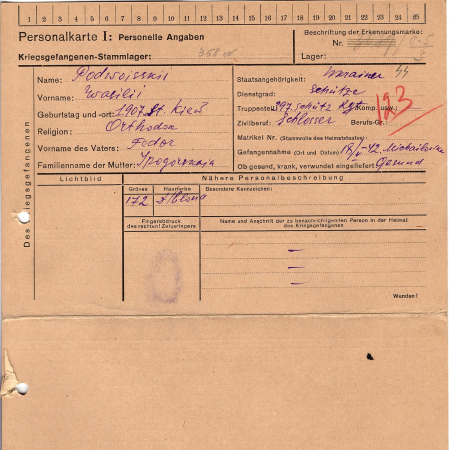 1 2 3 4 5 6 7 8 9 10 11 12 13 14 15 16 17 18 19 20 21 22 23 24 25
Personalkarte I: Personelle Angaben
Kriegsgefangenen-Stammlager:
Beschriftung der Erkennungsmarke:
Nr.
Lager:
Des Kriegsgefangenen
Name: Podwojskii
Vorname: Wasilii
Geburtstag und -ort: 1907 St. Kiew
Religion: Orthodox
Vorname des Vaters: Fodor
Familienname der Mutter:
Staatsangehörigkeit: Ukrainer
Dienstgrad: Schütze
Truppenteil: 297. Schütz. Rgt. Komp. usw.:
Zivilberuf: Schlosser Berufs-Gr.:
123
Matrikel Nr. (Stammrolle des Heimatstaates):
Gefangennahme (Ort und Datum): 42. Michailowka
Ob gesund, krank, verwundet eingeliefert: Gesund
Lichtbild
Nähere Personalbeschreibung
Grösse
Haarfarbe
Besondere Kennzeichen:
172
Blond
Fingerabdruck
des rechten! Zeigefingers
Name und Anschrift der zu benachrichtigenden Person in der Heimat
des Kriegsgefangenen
Wenden!